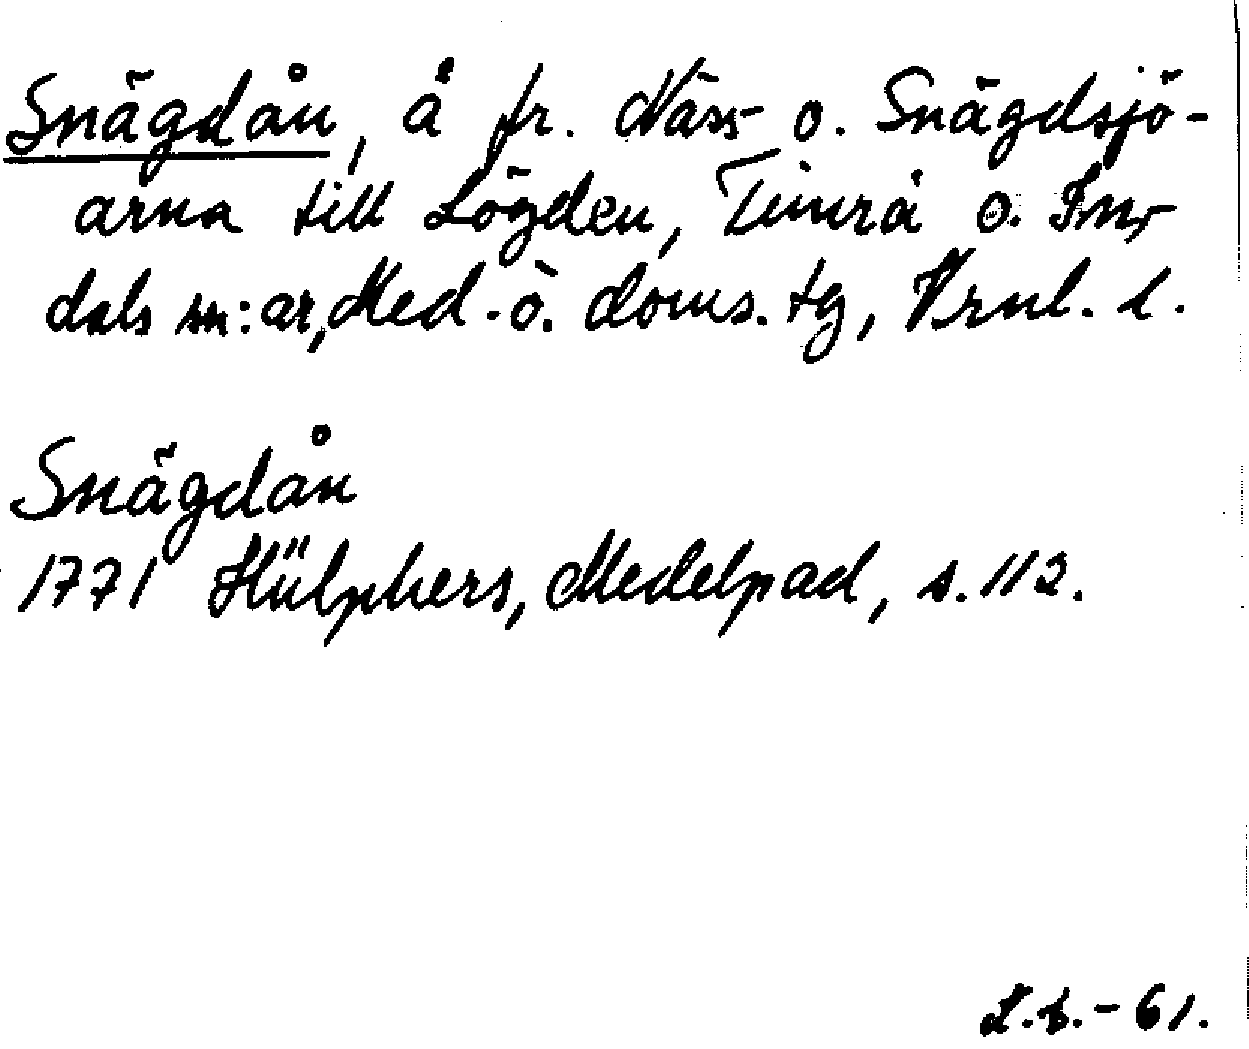 Snägdån, å fr. Näss- o. Snägdsjö-
arna till Lögden, Timrå o. Ind-
dals sn:ar, Med. ö. doms. tg, Vrnl. l.
Snägdån
1771 Hülphers, Medelpad, s. 112.
L.b.-61.